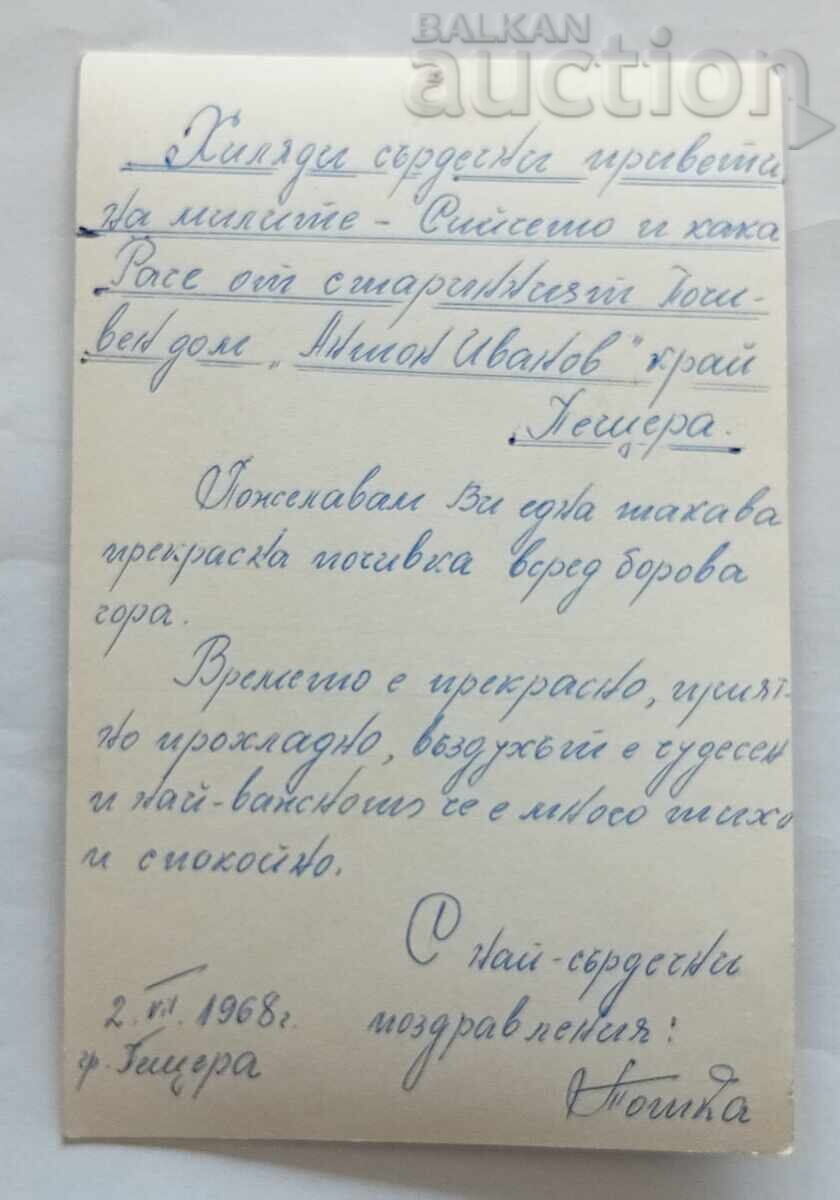 BALKAN
auction
Хиляди сърдечни привети
на милите – Сийчето и кака
Расе от старинният Почи-
вен дом „Антон Иванов" край
Пещера.
Пожелавам Ви една такава
прекрасна почивка всред борова
гора.
Времето е прекрасно, прият-
но прохладно, въздухът е чудесен
и най-важното че е много тихо
и спокойно.
С най-сърдечни
поздравления:
2.VII.1968г.
гр. Пещера